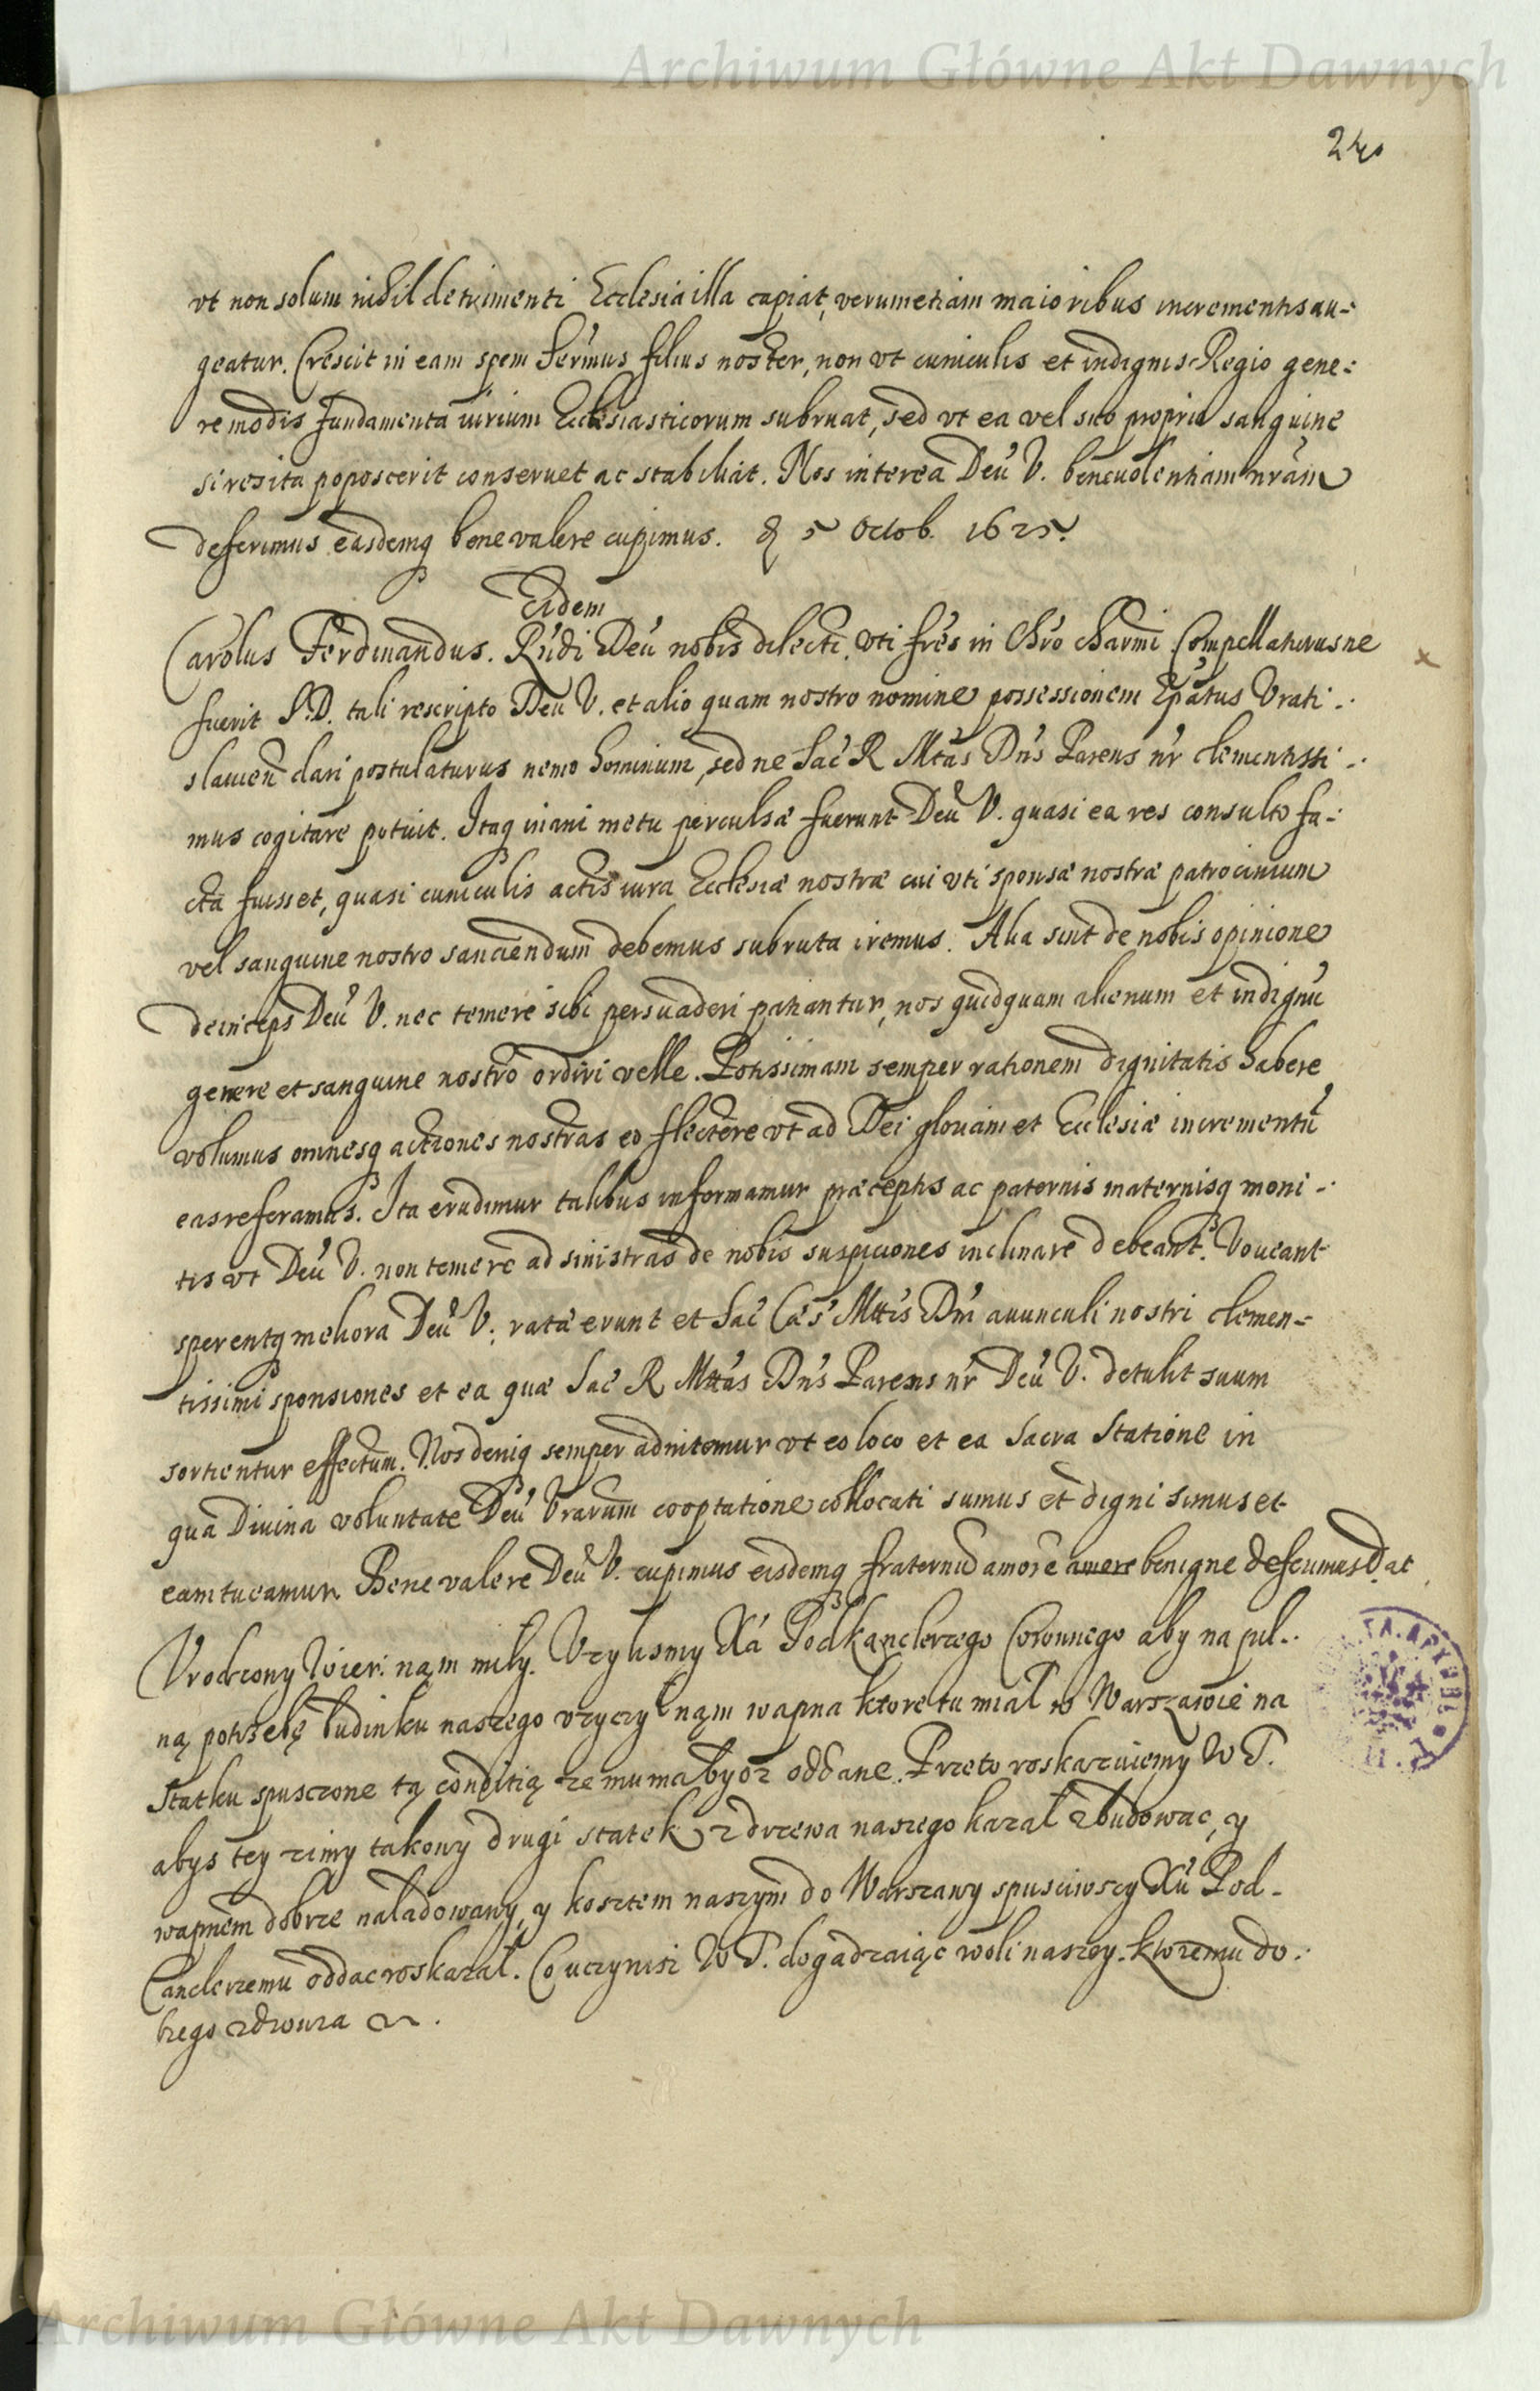 Archiwum Główne Akt Dawnych
240
vt non solum nihil detrimenti Ecclesia illa capiat, verumetiam maioribus incrementis au-
geatur. Crescit in eam spem Sermus filius noster, non vt cuniculis et indignis Regio gene-
re modis fundamenta iurium Ecclesiasticorum subruat, sed vt ea vel suo proprio sanguine
si res ita poposcerit conseruet ac stabiliat. Nos interea Deu V. beneuolentiam nram
deferimus easdemq bene valere cupimus. 5 Octob. 1625.
Eidem
Carolus Ferdinandus. Rndi Deu nobis dilecti, vti fres in Chro charmi. Compellaturus ne
fuerit S.D. tali rescripto Deu V. et alio quam nostro nomine possessionem Epatus Vrati-
slauien dari postulaturus nemo hominum, sed ne Sac R Mtas Dns Parens nr clementissi-
mus cogitare potuit. Itaq inani metu perculsæ fuerunt Deu V. quasi ea res consulto fa-
cta fuisset, quasi cuniculis actis iura Ecclesiæ nostræ cui vti sponsæ nostræ patrocinium
vel sanguine nostro sanciendum debemus subruta iremus. Alia sint de nobis opinione
deinceps Deu V. nec temere sibi persuaderi patiantur, nos quidquam alienum et indignu
genere et sanguine nostro ordiri velle. Potissimam semper rationem dignitatis habere
volumus omnesq actiones nostras eo flectere vt ad Dei gloriam et Ecclesiæ incrementu
eas referamus. Ita erudimur talibus informamur præceptis ac paternis maternisq moni-
tis vt Deu V. non temere ad sinistras de nobis suspiciones inclinare debeant. Voueant
sperentq meliora Deu V. rata erunt et Sac Cæs Mttis Dni auunculi nostri clemen-
tissimi sponsiones et ea quæ Sac R Mttas Dns Parens nr Deu V. detulit suum
sortientur effectum. Nos deniq semper adnitemur vt eo loco et ea Sacra Statione in
qua Diuina voluntate Deu Vrarum cooptatione collocati sumus et digni simus et
eam tueamur. Bene valere Deu V. cupimus eisdemq fraternu amore amore benigne deferimus Dat
Vrodzony Wier. nąm miły. Vzylismy Xa Podkanclerzego Coronnego aby na pil-
ną potrzebę budinku naszego vzyczył nąm wapna ktore tu miał w Warszawie na
Statku spusczone tą conditią ze mu ma bydz oddane. Przeto roskazuiemy W T.
abys tey zimy takowy drugi statek z drzewa naszego kazał zbudowac, y
wapnem dobrze naładowany, y kosztem naszym do Warszawy spusciwszy Xu Pod-
Canclerzemu oddac roskazał. Co uczynisz W T. dogadzaiąc woli naszey. ktoremu do-
brego zdrowia
Archiwum Główne Akt Dawnych